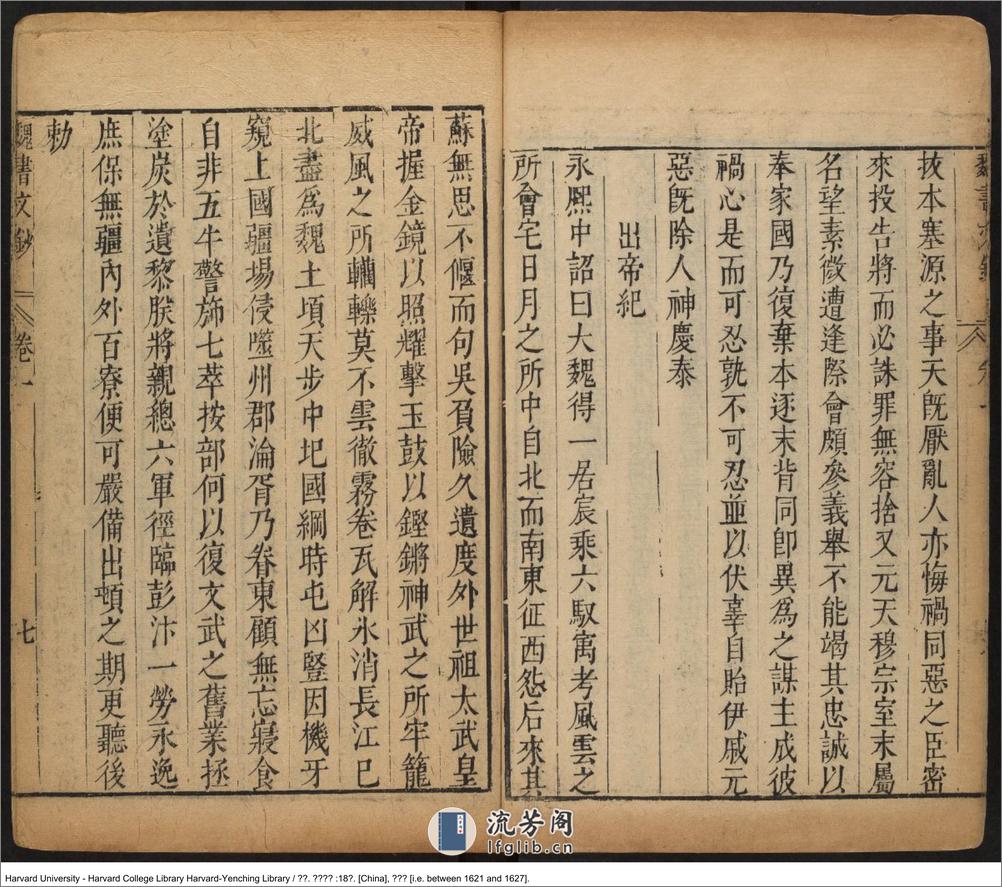 抜本塞源之事天旣厭亂人亦悔禍同惡之臣密
來投告將而必誅罪無容捨又元天穆宗室末屬
名望素微遭逢際會頗參義舉不能竭其忠誠以
奉家國乃復棄本逐末背同卽異爲之謀主成彼
禍心是而可忍孰不可忍並以伏辜自貽伊戚元
惡旣除人神慶泰
出帝紀
永熙中詔曰大魏得一居宸乘六馭寓考風雲之
所會宅日月之所中自北而南東征西怨后來其
蘇無思不偃而句吳負險久遺度外世祖太武皇
帝握金鏡以照耀擊玉鼓以鏗鏘神武之所牢籠
威風之所轥轢莫不雲徹霧卷瓦解氷消長江已
北盡爲魏土頃天步中圮國綱時屯凶豎因機牙
窺上國疆場侵噬州郡淪胥乃眷東顧無忘寢食
自非五牛警旆七萃按部何以復文武之舊業拯
塗炭於遺黎朕將親總六軍徑臨彭汴一勞永逸
庶保無疆內外百寮便可嚴備出頓之期更聽後
勅
魏書文鈔 卷一 七
流芳阁
lfglib.cn
Harvard University - Harvard College Library Harvard-Yenching Library / ??. ???? :18?. [China], ??? [i.e. between 1621 and 1627].